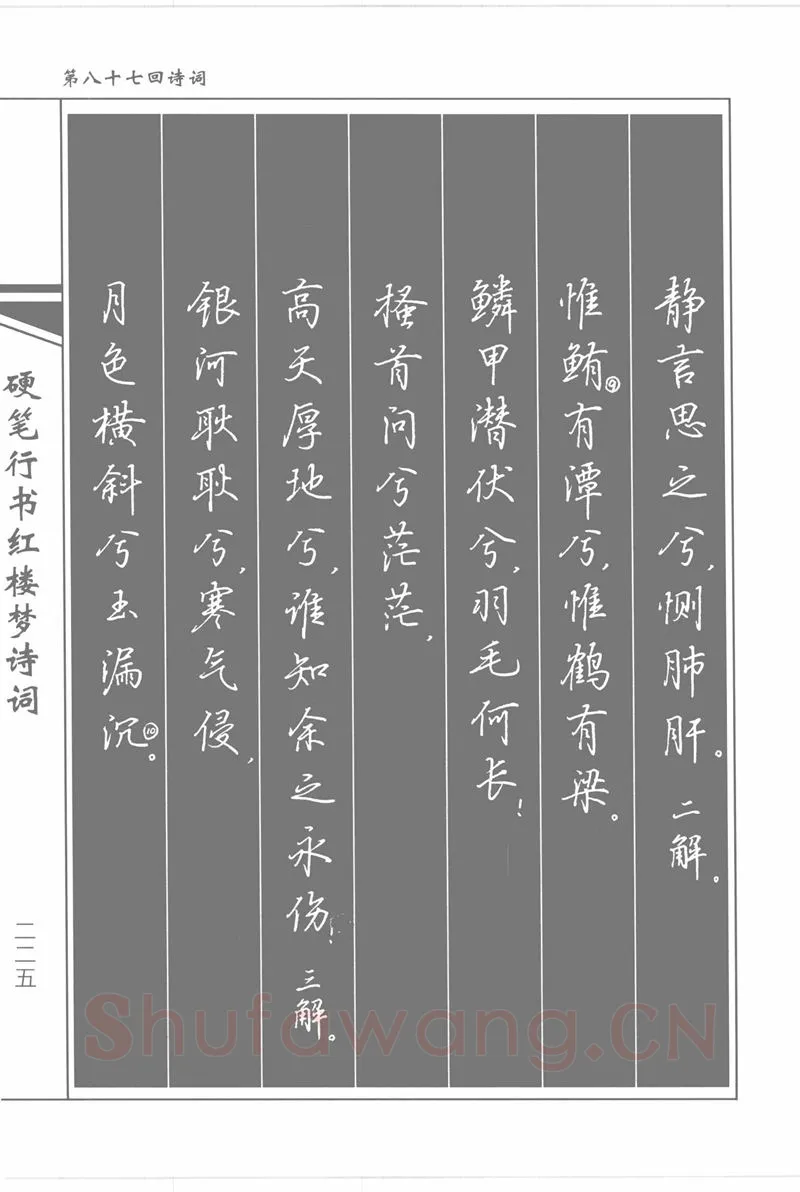 第八十七回诗词
静言思之兮,恻肺肝。二解。
惟鲔⑨有潭兮,惟鹤有梁。
鳞甲潜伏兮,羽毛何长!
搔首问兮茫茫,
高天厚地兮,谁知余之永伤!三解。
银河耿耿兮,寒气侵,
月色横斜兮玉漏沉⑩。
硬笔行书红楼梦诗词
二二五
Shufawang.CN